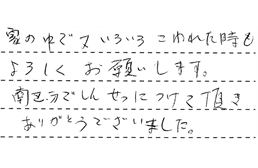 家の中で又いろいろこわれた時も
よろしくお願いします。
南区分でしんせつにつけて頂き
ありがとうございました。